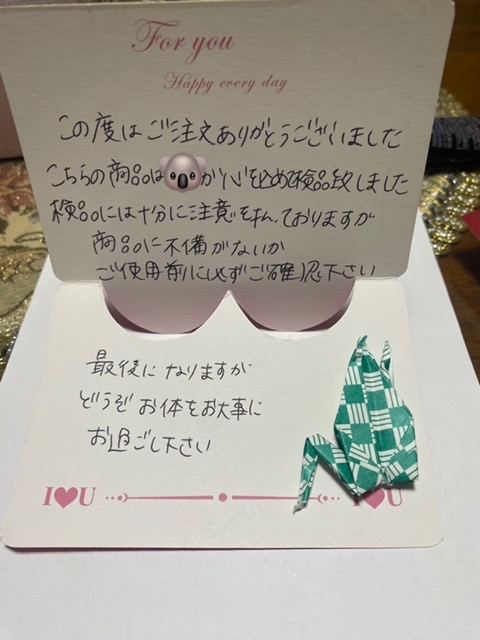 For you
Happy every day
この度はご注文ありがとうございました
こちらの商品は が心を込めて検品致しました
検品には十分に注意を払っておりますが
商品に不備がないか
ご使用前に必ずご確認下さい
最後になりますが
どうぞお体をお大事に
お過ごし下さい
I♥U U